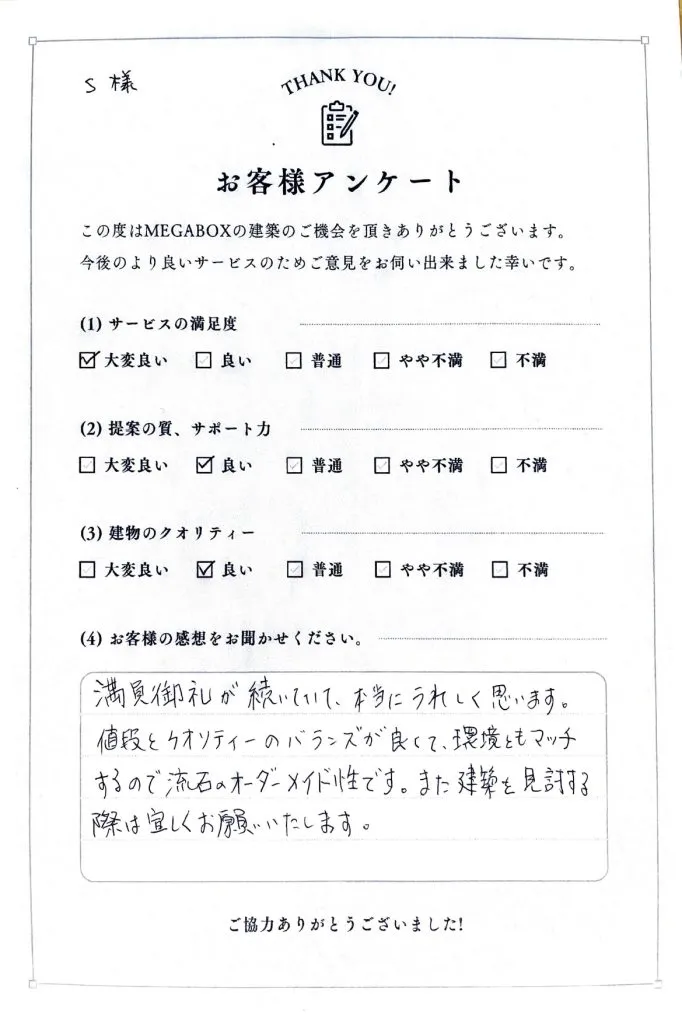 S 様
THANK YOU!
お客様アンケート
この度はMEGABOXの建築のご機会を頂きありがとうございます。
今後のより良いサービスのためご意見をお伺い出来ました幸いです。
(1) サービスの満足度
大変良い 良い 普通 やや不満 不満
(2) 提案の質、サポート力
大変良い 良い 普通 やや不満 不満
(3) 建物のクオリティー
大変良い 良い 普通 やや不満 不満
(4) お客様の感想をお聞かせください。
満員御礼が続いていて、本当にうれしく思います。
値段とクオリティーのバランスが良くて、環境ともマッチ
するので流石のオーダーメイド性です。また建築を見討する
際は宜しくお願いいたします。
ご協力ありがとうございました!